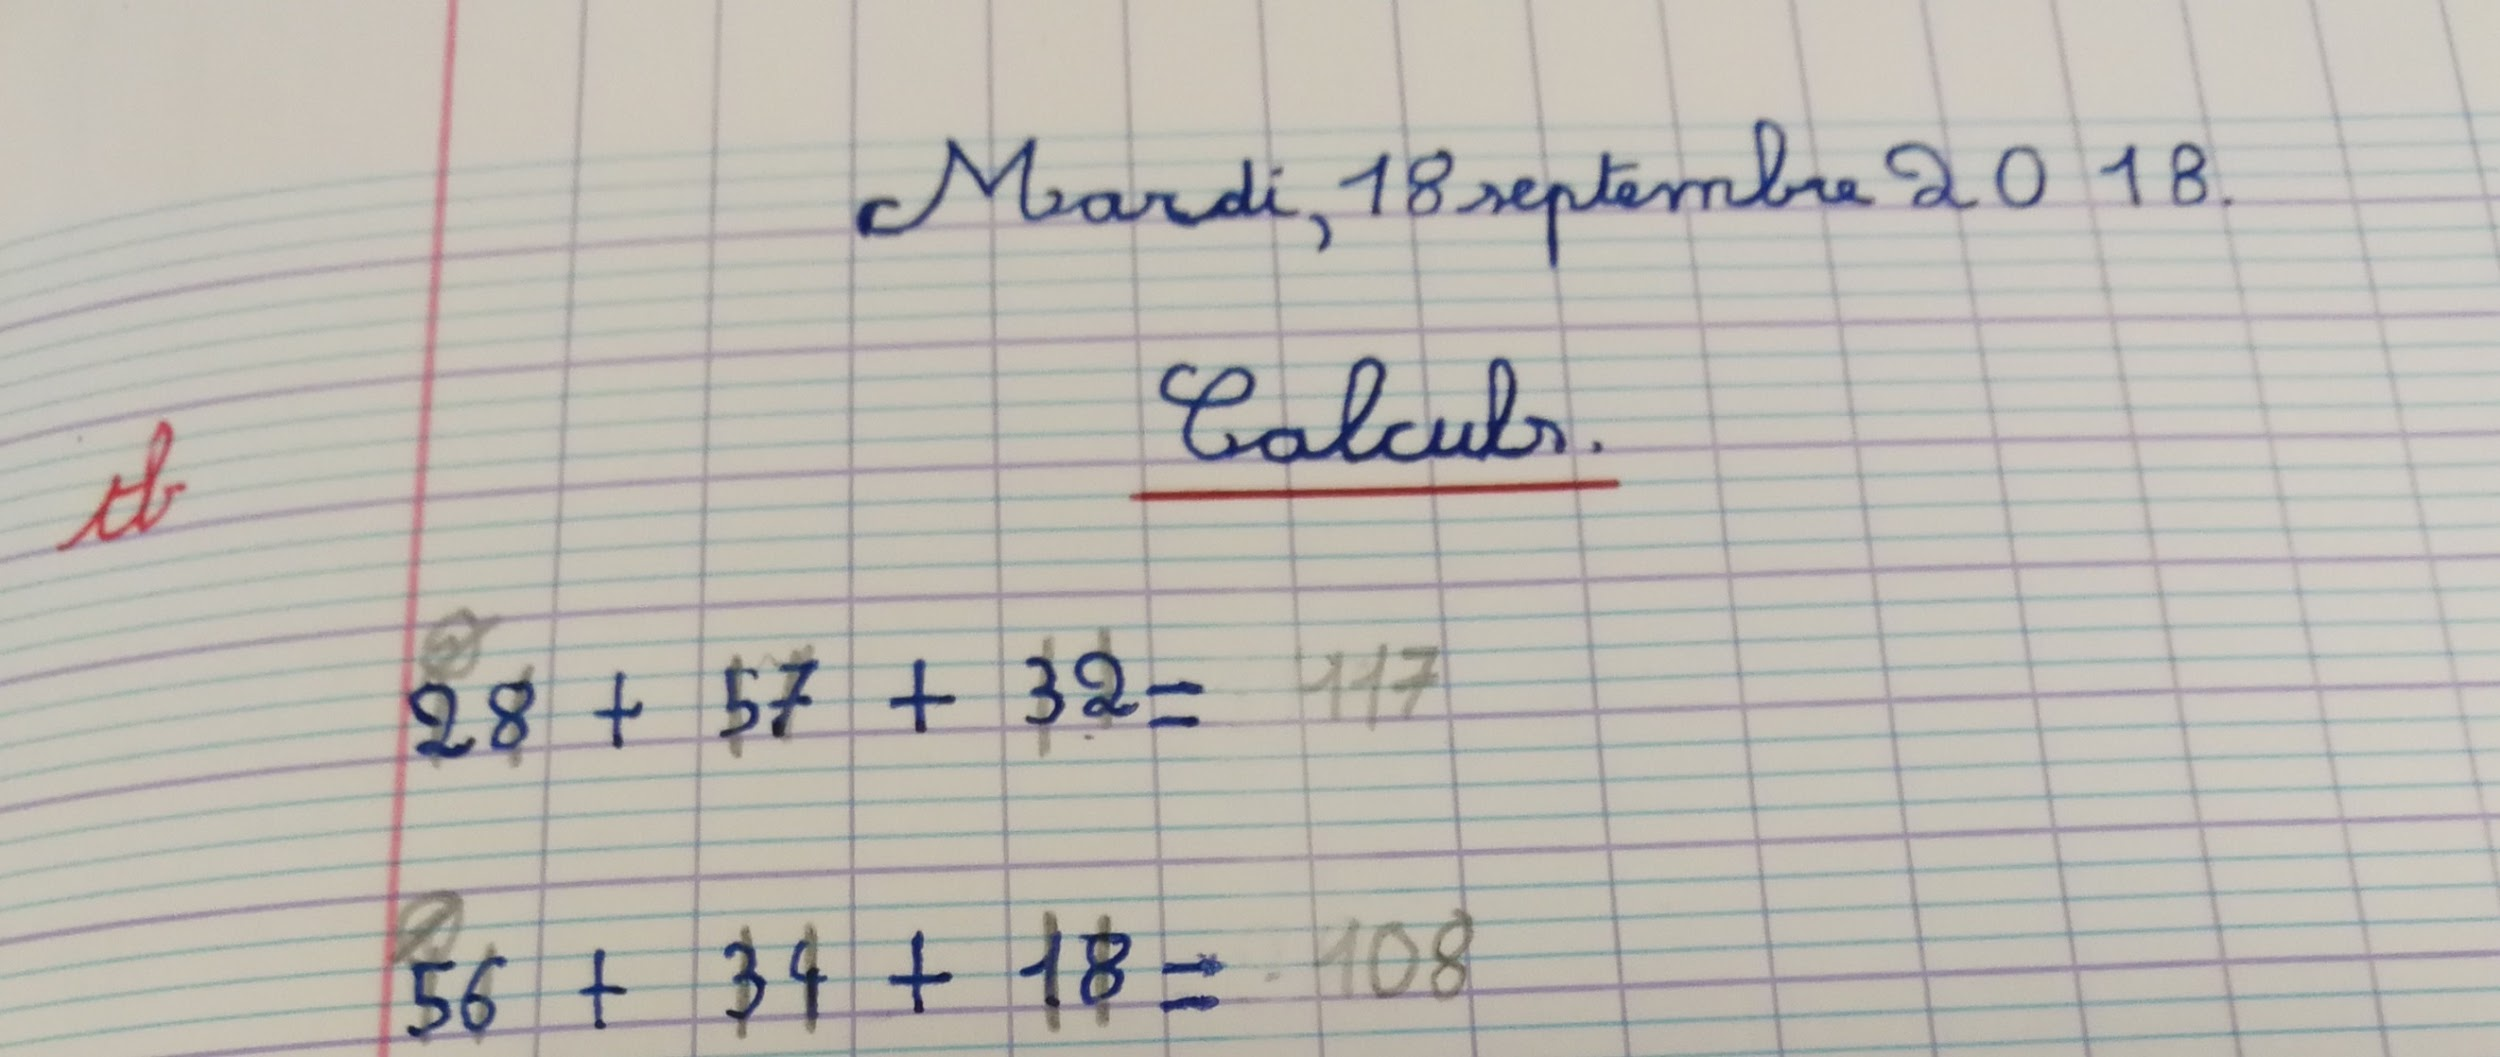 Mardi, 18 septembre 2018.
Calculs.
tb
28 + 57 + 32 = 117
56 + 34 + 18 = 108